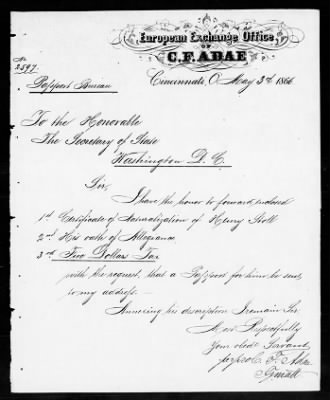 European Exchange Office
OF
C. F. ADAE
No
2597.
Cincinnati, O. May 3d 1866
Passport Bureau
To the Honorable
The Secretary of State
Washington D. C.
Sir,
I have the honor to forward enclosed
1st Certificate of Naturalization of Henry
2nd His oath of Allegiance
3rd Five Dollars Tax
with the request, that a Passport for him be sent
to my address.
Annexing his description I remain Sir
Most Respectfully
Your obedt Servant
C. F. Adae